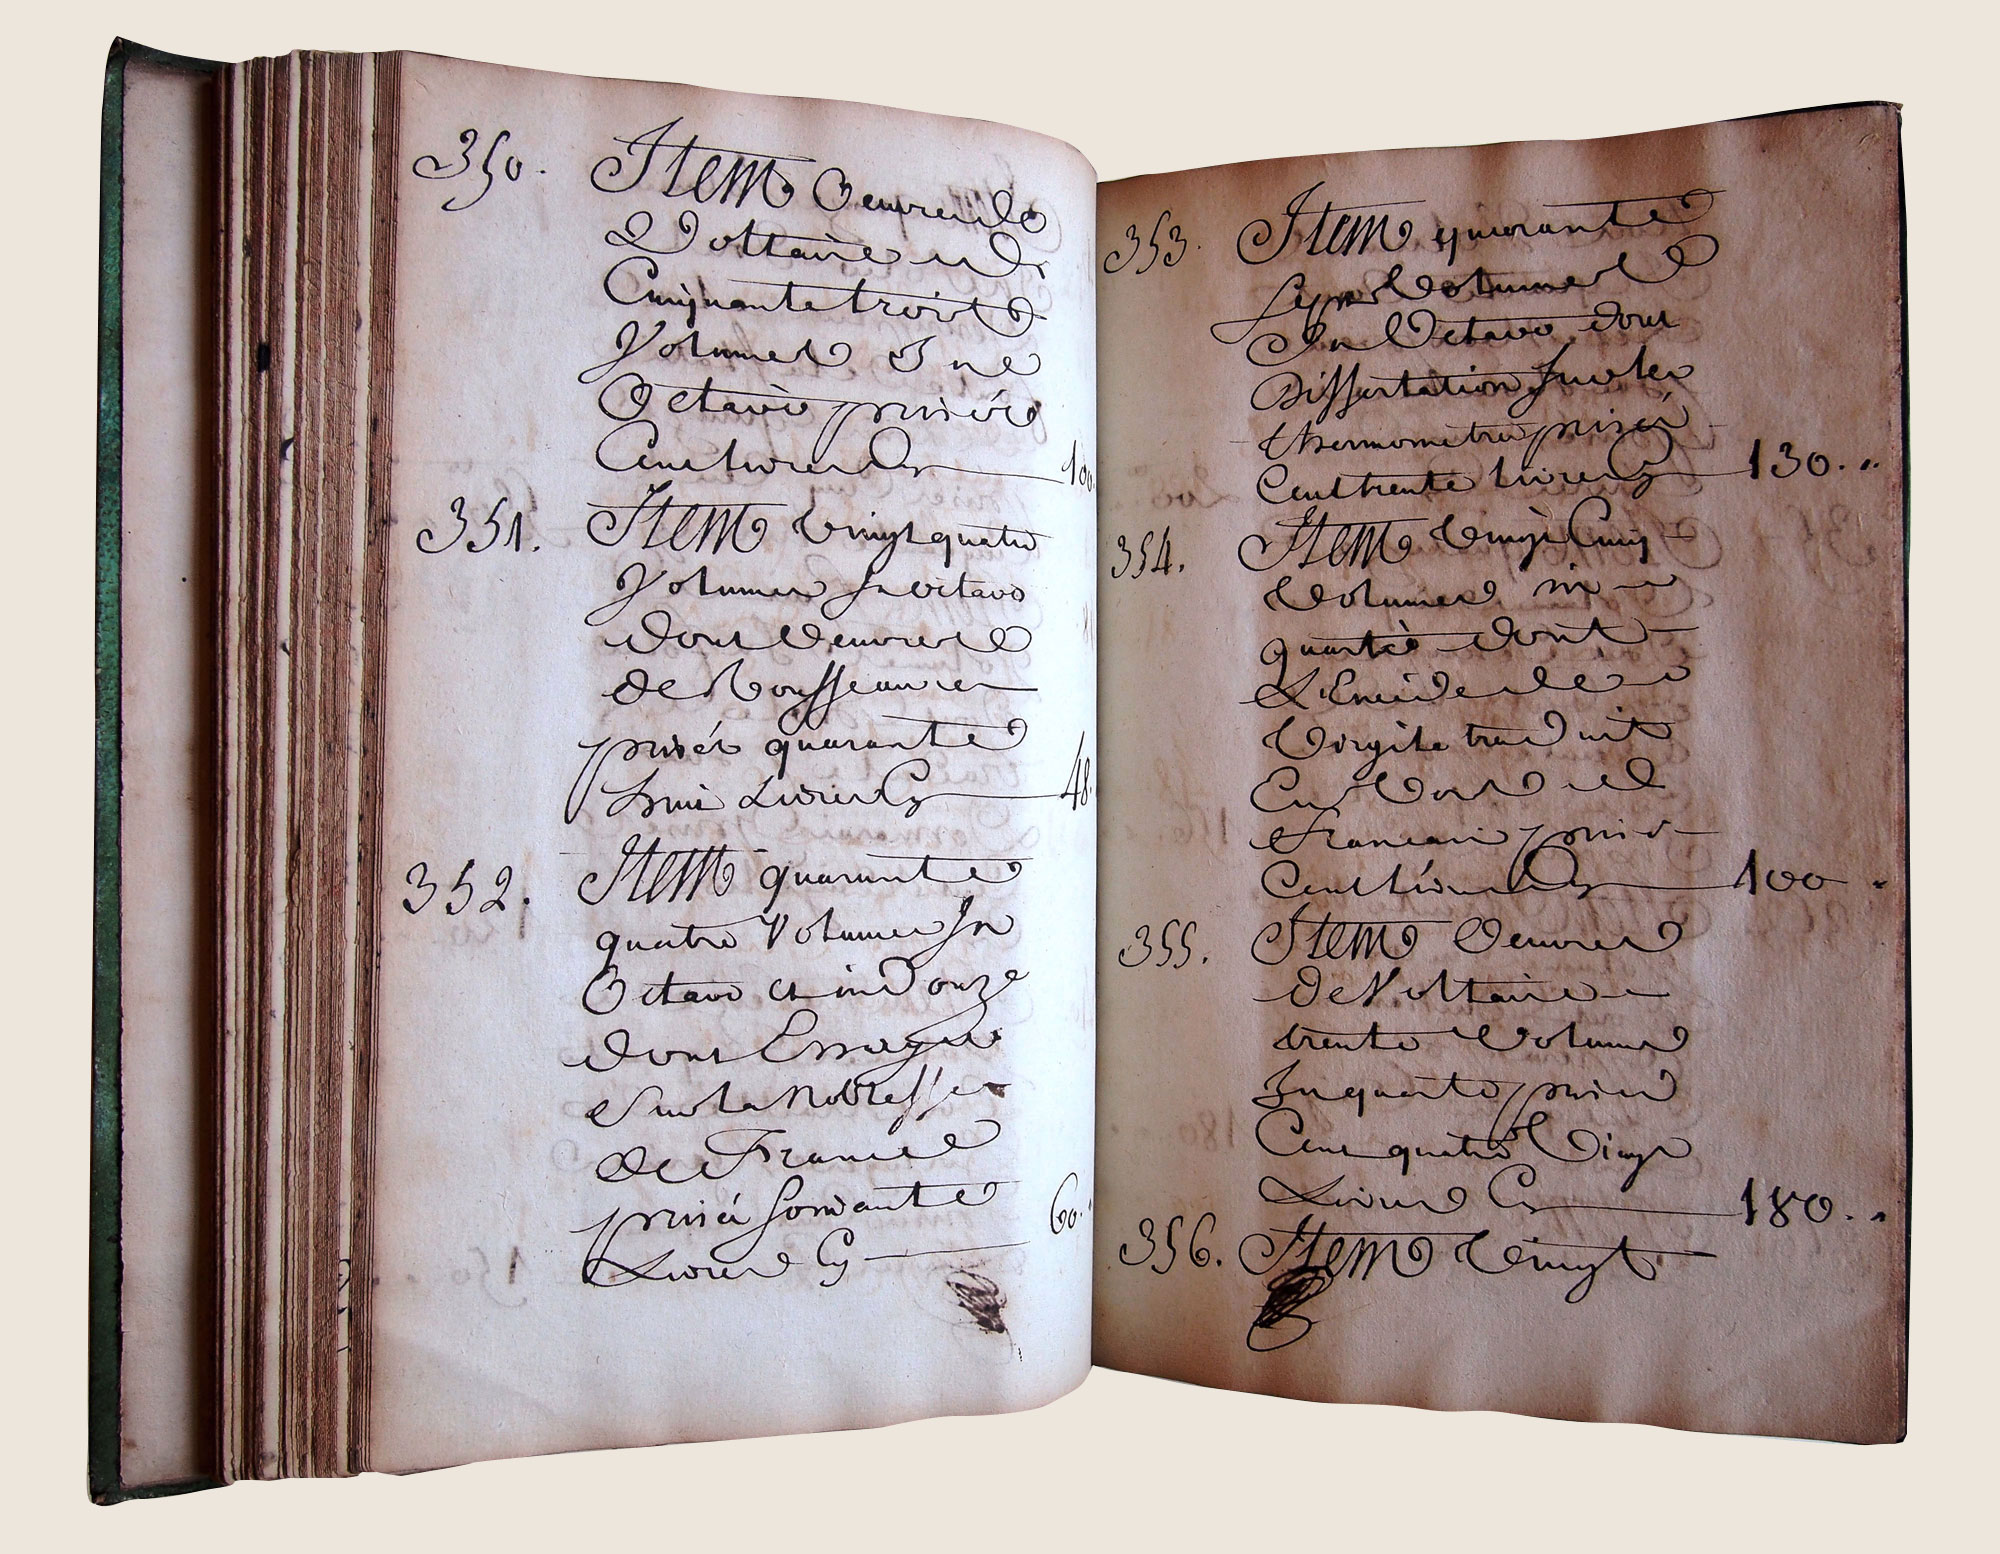 350. Item Oeuvres de
Voltaire en
Cinquante trois
Volumes In
Octavo prisés
Cent livres Cy 100.
351. Item Vingt quatre
Volumes In octavo
dont Oeuvres
de Rousseau
prisés quarante
huit Livres Cy 48.
352. Item quarante
quatre Volumes In
Octavo et in Douze
dont Essay
Sur la Noblesse
de France
prisés soixante
Livres Cy 60.
353. Item quarante
Sept Volumes
In Octavo dont
Dissertation sur les
thermometres prisés
Cent trente livres Cy 130. "
354. Item Vingt Cinq
Volumes in
quarto dont
L'Eneide de
Virgile traduit
En Vers
Francais prisés
Cent livres Cy 100 "
355. Item Oeuvres
de Voltaire
trente Volumes
In quarto prisés
Cent quatre Vingt
Livres Cy 180. "
356. Item Vingt